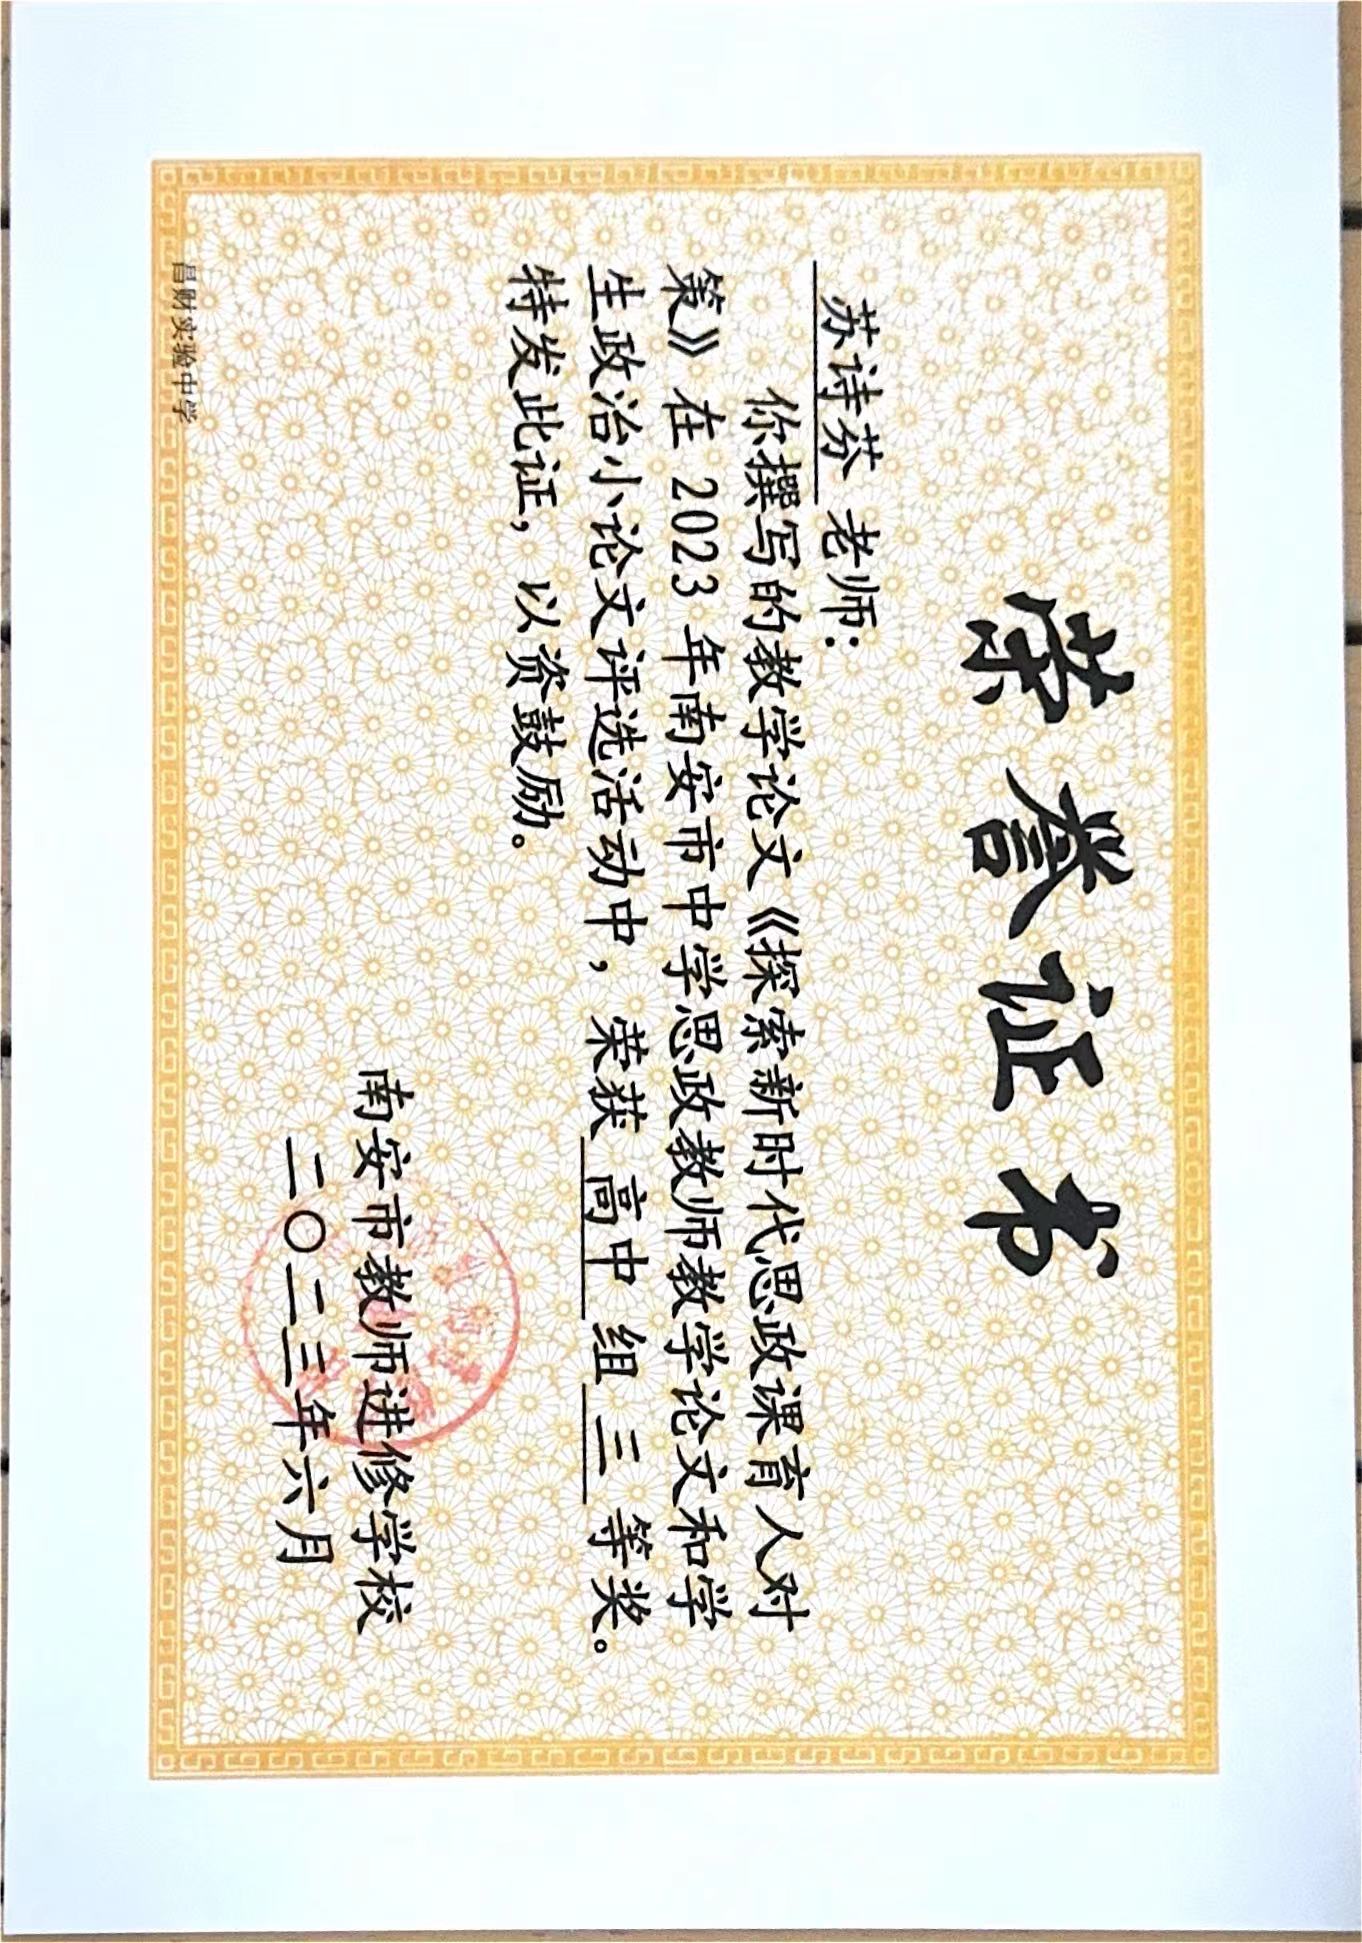 荣誉证书
苏诗芬 老师：
你撰写的教学论文《探索新时代思政课育人对
策》在 2023 年南安市中学思政教师教学论文和学
生政治小论文评选活动中，荣获 高中 组 三 等奖。
特发此证，以资鼓励。
南安市教师进修学校
二〇二三年六月
昌财实验中学